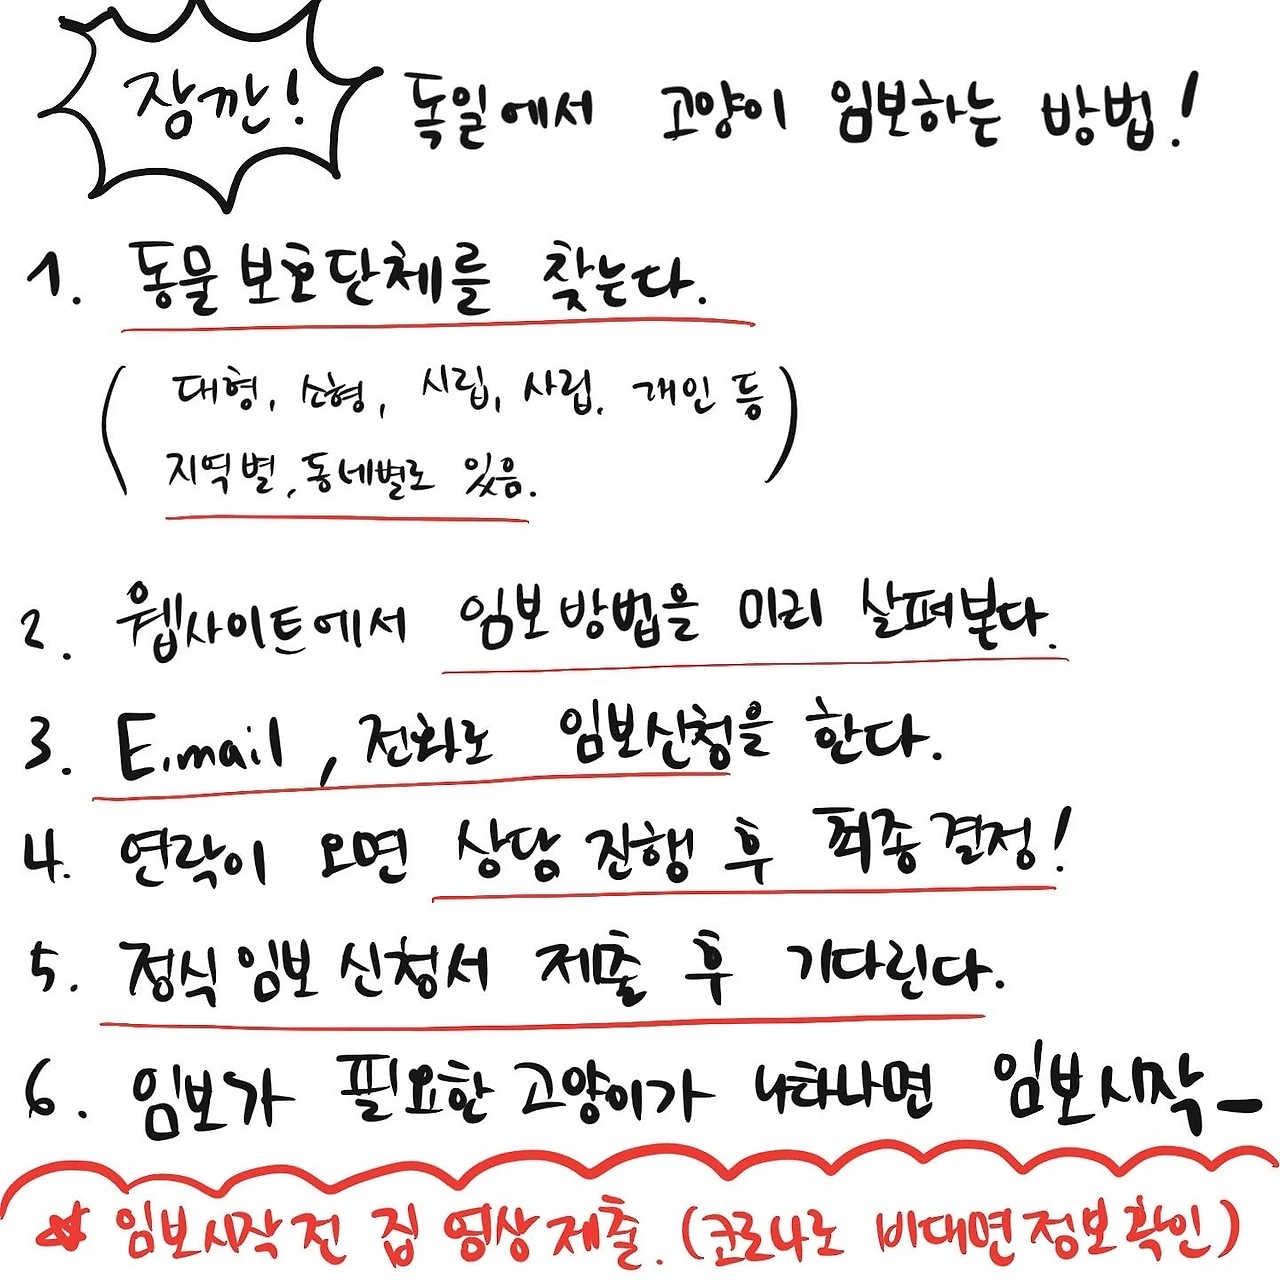 잠깐! 독일에서 고양이 임보하는 방법!
1. 동물보호단체를 찾는다.
(대형, 소형, 시립, 사립, 개인 등
지역별, 동네별로 있음.)
2. 웹사이트에서 임보방법을 미리 살펴본다.
3. E.mail, 전화로 임보신청을 한다.
4. 연락이 오면 상담 진행 후 최종결정!
5. 정식 임보 신청서 제출 후 기다린다.
6. 임보가 필요한 고양이가 나타나면 임보시작_
☆ 임보시작 전 집 영상제출. (코로나로 비대면정보확인)